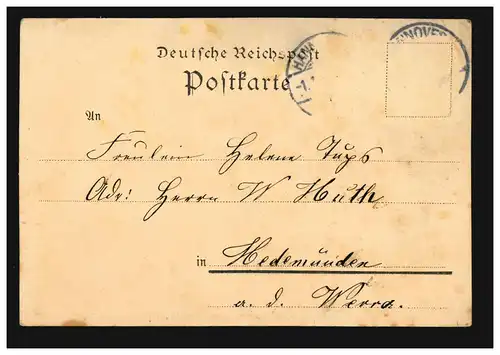 Deutsche Reichspost
Postkarte
HAN
NNOVER
An
Fräulein Helene Tups
Adr: Herrn W Huth
in Hedemünden
a. d. Werra.